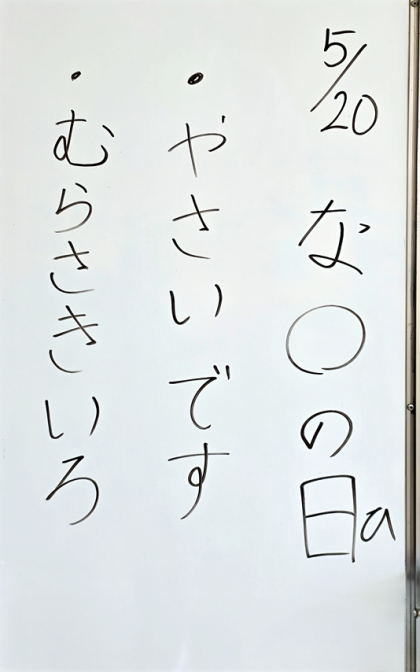 5/20 な〇の日a
・やさいです
・むらさきいろ